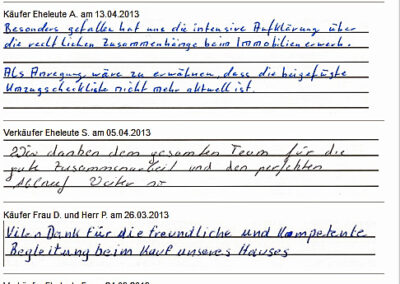 Käufer Eheleute A. am 13.04.2013
Besonders gefallen hat uns die intensive Aufklärung über
die rechtlichen Zusammenhänge beim Immobilienerwerb.
Als Anregung wäre zu erwähnen, dass die beigefügte
Umzugscheckliste nicht mehr aktuell ist.
Verkäufer Eheleute S. am 05.04.2013
Wir danken dem gesamten Team für die
gute Zusammenarbeit und den perfekten
Ablauf
Käufer Frau D. und Herr P. am 26.03.2013
Vielen Dank für die freundliche und kompetente
Begleitung beim Kauf unseres Hauses